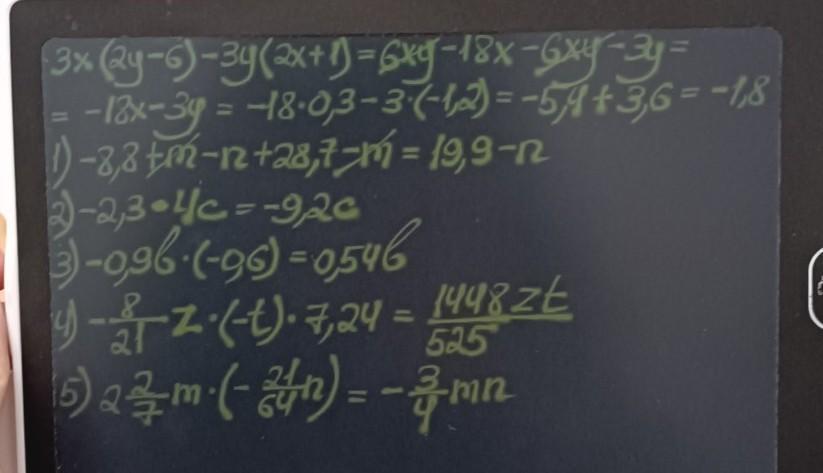 3x(2y-6)-3y(2x+1)=6xy-18x-6xy-3y=
= -18x-3y = -18·0,3-3·(-1,2)=-5,4+3,6=-1,8
1) -8,8+m-n+28,7-m=19,9-n
2) -2,3•4c=-9,2c
3) -0,9b·(-0,6)=0,54b
4) -8/21 z·(-t)·7,24 = 1448zt/525
5) 2 2/7 m·(-21/64 n) = -3/4 mn